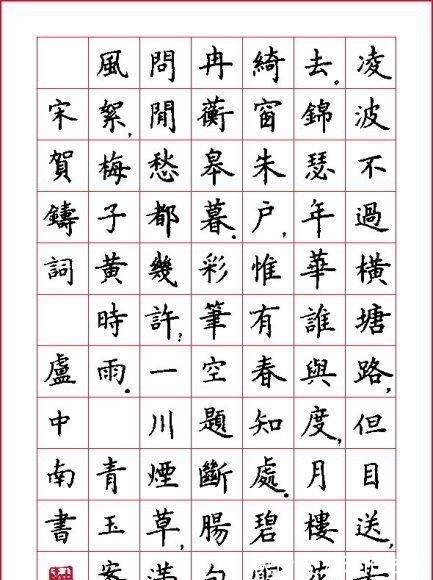 凌波不過橫塘路,但目送,
去。錦瑟年華誰與度,月樓花
綺窗朱戶,惟有春知處。碧
冉蘅皋暮。彩筆空題斷腸句
問閒愁都幾許,一川煙草,滿
風絮,梅子黃時雨。 青玉案
宋賀鑄詞 盧中南書